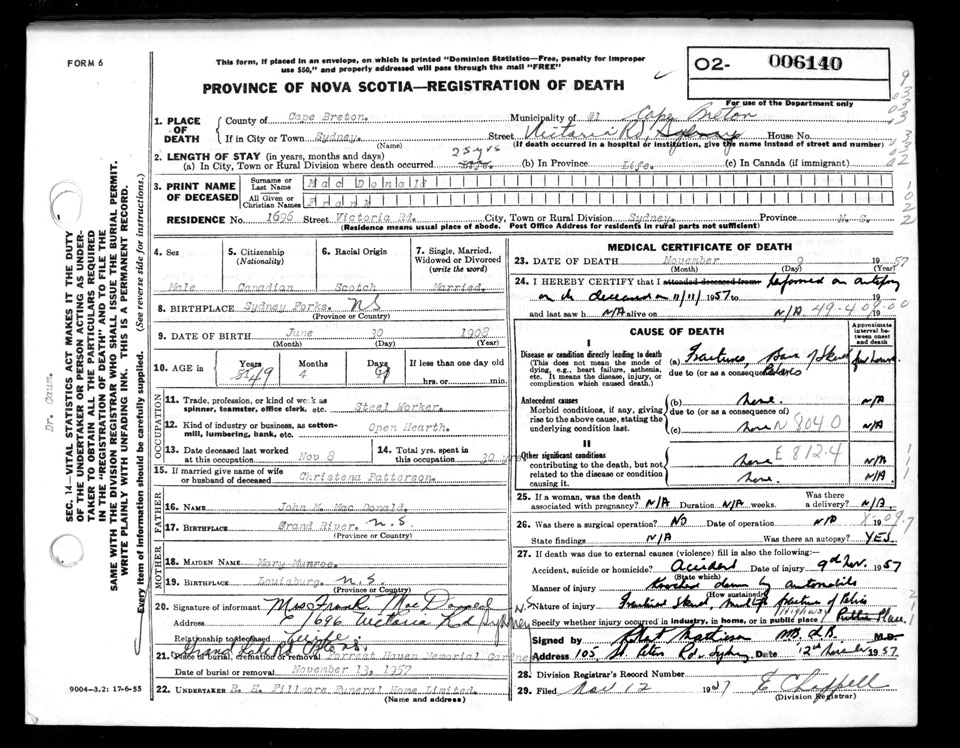 FORM 6
This form, if placed in an envelope, on which is printed "Dominion Statistics—Free, penalty for improper
use $50," and properly addressed will pass through the mail "FREE"
02- 006140
For use of the Department only
PROVINCE OF NOVA SCOTIA—REGISTRATION OF DEATH
1. PLACE OF DEATH
County of Cape Breton. Municipality of #1 Cape Breton
If in City or Town Sydney. Street Victoria Rd, Sydney House No.
(Name) (If death occurred in a hospital or institution, give the name instead of street and number)
2. LENGTH OF STAY (in years, months and days) 25yrs
(a) In City, Town or Rural Division where death occurred (b) In Province Life. (c) In Canada (if immigrant)
3. PRINT NAME OF DECEASED
Surname or Last Name Mac Donald
All Given or Christian Names Frank
RESIDENCE No. 1696 Street Victoria Rd. City, Town or Rural Division Sydney. Province N. S.
(Residence means usual place of abode. Post Office Address for residents in rural parts not sufficient)
4. Sex Male
5. Citizenship (Nationality) Canadian
6. Racial Origin Scotch
7. Single, Married, Widowed or Divorced (write the word) Married.
8. BIRTHPLACE Sydney Forks. NS
(Province or Country)
9. DATE OF BIRTH June 30 1908
(Month) (Day) (Year)
10. AGE in Years 49 Months 4 Days If less than one day old hrs. or min.
OCCUPATION
11. Trade, profession, or kind of work as spinner, teamster, office clerk, etc. Steel Worker.
12. Kind of industry or business, as cotton-mill, lumbering, bank, etc. Open Hearth.
13. Date deceased last worked at this occupation Nov 8
14. Total yrs. spent in this occupation 30 yrs
15. If married give name of wife or husband of deceased Christena Patterson.
FATHER
16. NAME John M. Mac Donald.
17. BIRTHPLACE Grand River. N.S.
(Province or Country)
MOTHER
18. MAIDEN NAME Mary Munroe.
19. BIRTHPLACE Louisburg. N.S.
(Province or Country)
20. Signature of informant Mrs Frank MacDonald
Address 1696 Victoria Rd Sydney N.S.
Relationship to deceased Wife
21. Place of burial, cremation or removal Forrest Haven Memorial Gardens
Date of burial or removal November 13, 1957
22. UNDERTAKER R. H. Fillmore Funeral Home Limited.
(Name and address)
9004—3.2: 17-6-55
MEDICAL CERTIFICATE OF DEATH
23. DATE OF DEATH November 9 1957
(Month) (Day) (Year)
24. I HEREBY CERTIFY that I attended deceased from: Performed an autopsy
on the deceased on 11/11/1957 to 19
and last saw h N/A alive on N/A 19
49-4 09-00
CAUSE OF DEATH
Approximate interval between onset and death
I
Disease or condition directly leading to death
(This does not mean the mode of dying, e.g., heart failure, asthenia, etc. It means the disease, injury, or complication which caused death.)
(a) Fractures Base of Skull
due to (or as a consequence of) Pelvis
Antecedent causes
Morbid conditions, if any, giving rise to the above cause, stating the underlying condition last.
(b) none. N/A
due to (or as a consequence of)
(c) none N 804 0 N/A
II
Other significant conditions
contributing to the death, but not related to the disease or condition causing it.
none E 812.4 N/A
none. N/A
25. If a woman, was the death associated with pregnancy? N/A Duration N/A weeks. Was there a delivery? N/A.
26. Was there a surgical operation? NO Date of operation N/A 19
State findings N/A Was there an autopsy? YES.
27. If death was due to external causes (violence) fill in also the following:—
Accident, suicide or homicide? Accident Date of injury 9th Nov. 1957
(State which)
Manner of injury Knocked down by automobile
(How sustained)
Nature of injury Fractured Skull, multiple fracture of Pelvis
Highway
Specify whether injury occurred in industry, in home, or in public place Public Place.
Signed by M.D.
Address 105, St. Peters Rd. Sydney Date 12th November 1957
28. Division Registrar's Record Number
29. Filed Nov 12 1957 E Chappell
(Division Registrar)
Dr. Gaum.
SEC. 14—VITAL STATISTICS ACT MAKES IT THE DUTY
OF THE UNDERTAKER OR PERSON ACTING AS UNDER-
TAKER TO OBTAIN ALL THE PARTICULARS REQUIRED
IN THE "REGISTRATION OF DEATH" AND TO FILE THE
SAME WITH THE DIVISION REGISTRAR WHO SHALL ISSUE THE BURIAL PERMIT.
WRITE PLAINLY WITH UNFADING INK. THIS IS A PERMANENT RECORD.
Every item of information should be carefully supplied. (See reverse side for instructions.)